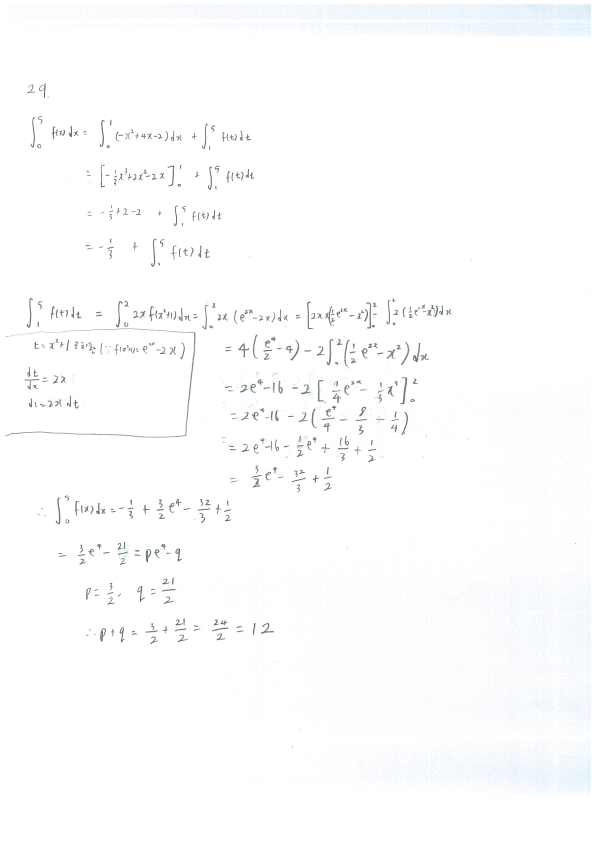 29.
∫₀⁵ f(x)dx = ∫₀¹ (-x²+4x-2)dx + ∫₁⁵ f(t)dt
= [-⅓x³+2x²-2x]₀¹ + ∫₁⁵ f(t)dt
= -1/3+2-2 + ∫₁⁵ f(t)dt
= -1/3 + ∫₁⁵ f(t)dt
∫₁⁵ f(t)dt = ∫₀² 2x f(x²+1)dx = ∫₀² 2x(e²ˣ-2x)dx = [2x×(½e²ˣ-x²)]₀² - ∫₀² 2(½e²ˣ-x²)dx
t=x²+1 (∵ f(x²+1)=e²ˣ-2x)
dt/dx = 2x
dt=2x dt
= 4(e⁴/2-4) - 2∫₀²(½e²ˣ-x²)dx
= 2e⁴-16 - 2[¼e²ˣ - ⅓x³]₀²
= 2e⁴-16 - 2(e⁴/4 - 8/3 - 1/4)
= 2e⁴-16 - ½e⁴ + 16/3 + 1/2
= 3/2 e⁴ - 32/3 + 1/2
∴ ∫₀⁵ f(x)dx = -1/3 + 3/2 e⁴ - 32/3 + 1/2
= 3/2 e⁴ - 21/2 = pe⁴-q
p= 3/2, q = 21/2
∴ p+q = 3/2 + 21/2 = 24/2 = 12